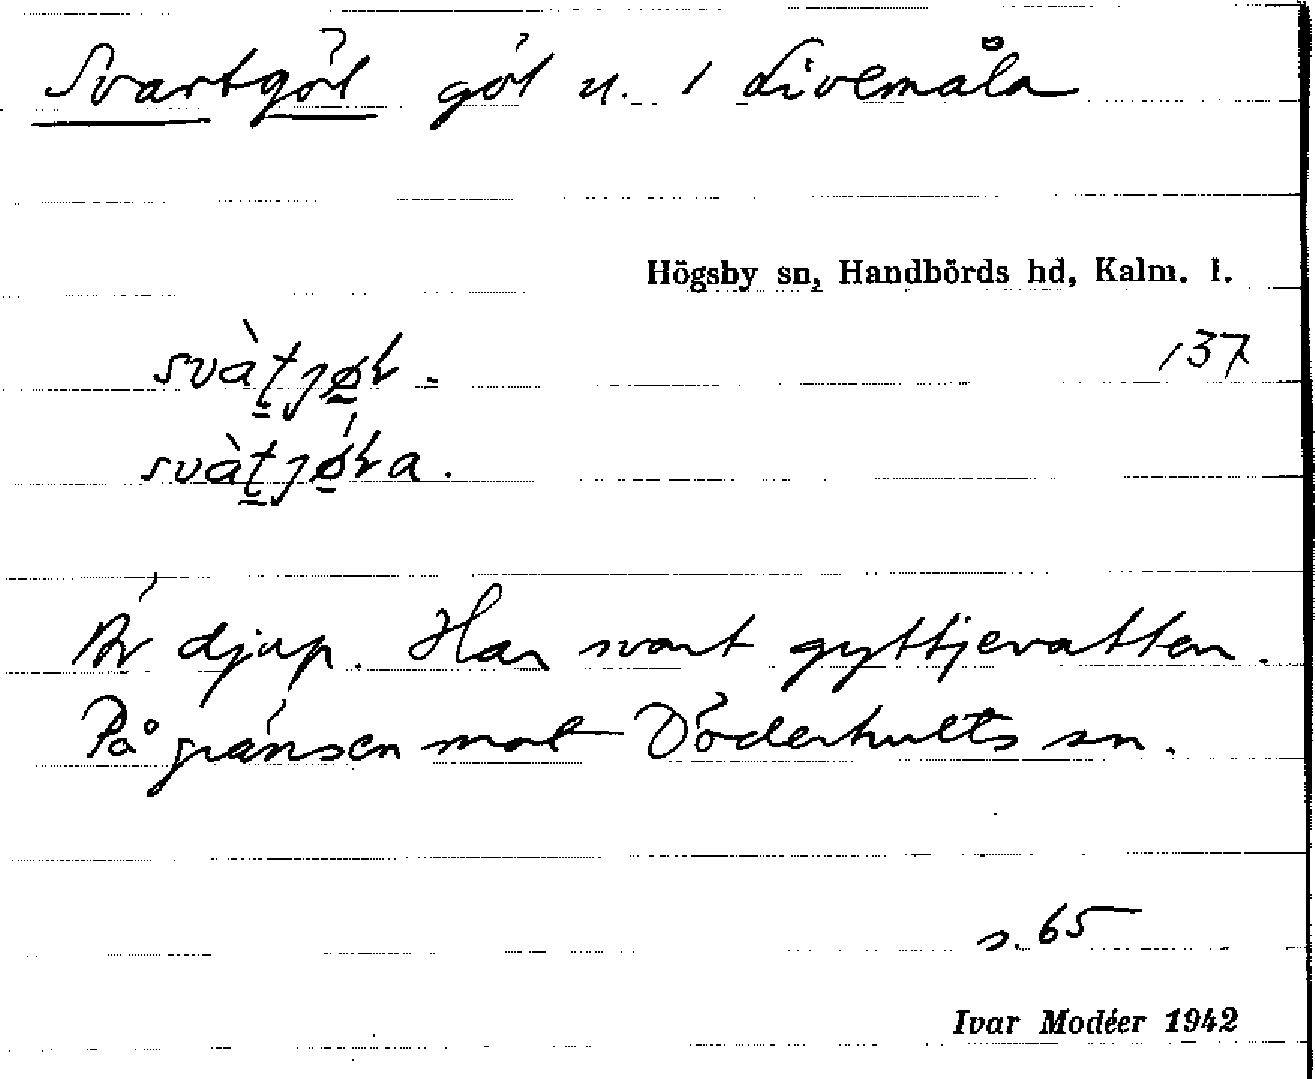 Svartgöl göl u. / Livemåla
Högsby sn, Handbörds hd, Kalm. l.
137
svàt̠jø̠ɫ.
svàt̠jǿ̠ɫa.
Är djup. Har svart gyttjevatten.
På gränsen mot Döderhults sn.
s. 65
Ivar Modéer 1942